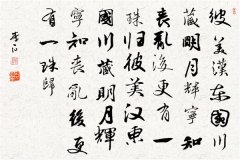 彼美漢东國川
藏明月輝寧知
喪亂後更有一
珠归彼美汉東
國川藏明月輝
寧知喪亂後更
有一珠歸